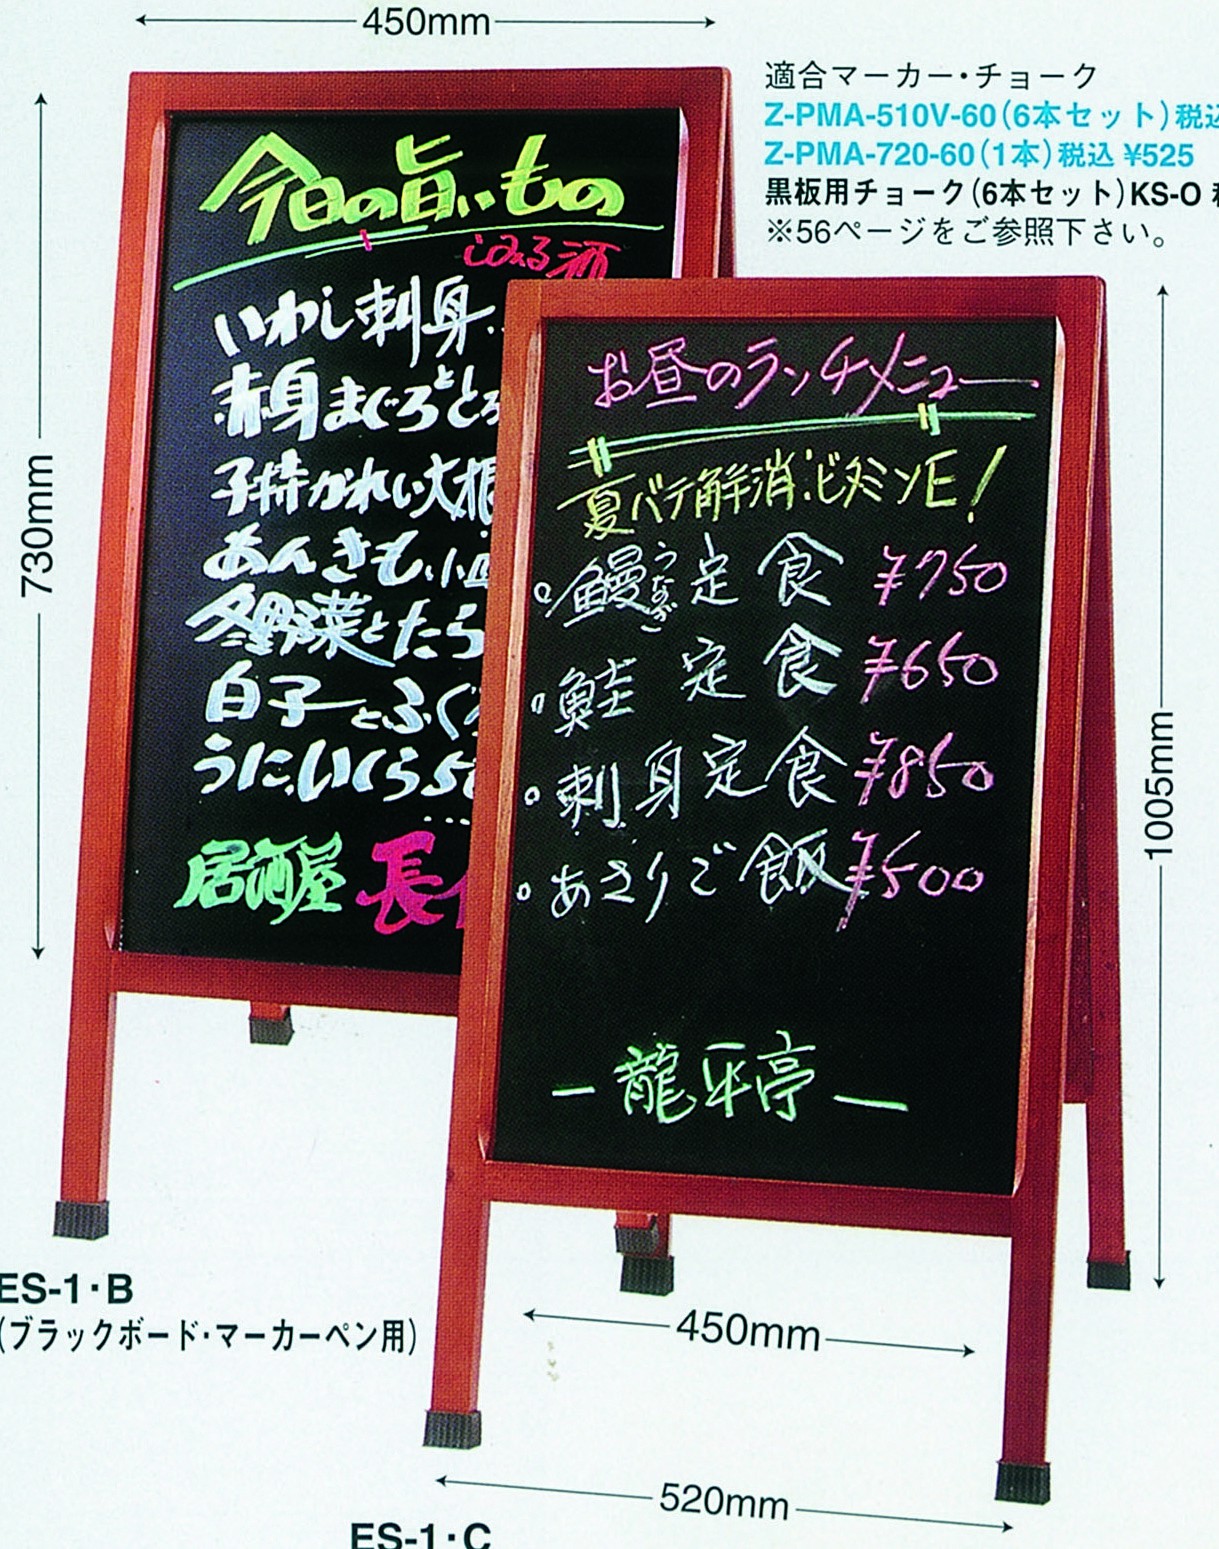 450mm
適合マーカー・チョーク
Z-PMA-510V-60(6本セット)税込
Z-PMA-720-60(1本)税込 ¥525
黒板用チョーク(6本セット)KS-O
※56ページをご参照下さい。
730mm
今日の旨いもの
しみる酒
いわし刺身
赤身まぐろととろ
子持かれい大根
あんきも
冬野菜とたら
白子とふぐ
うに、いくら
居酒屋 長
お昼のランチメニュー
夏バテ解消・ビタミンE!
。鰻うなぎ定食 ¥750
。鮭定食 ¥650
。刺身定食 ¥850
。あさりご飯 ¥500
ー龍牙亭ー
1005mm
ES-1・B
(ブラックボード・マーカーペン用)
450mm
520mm
ES-1・C